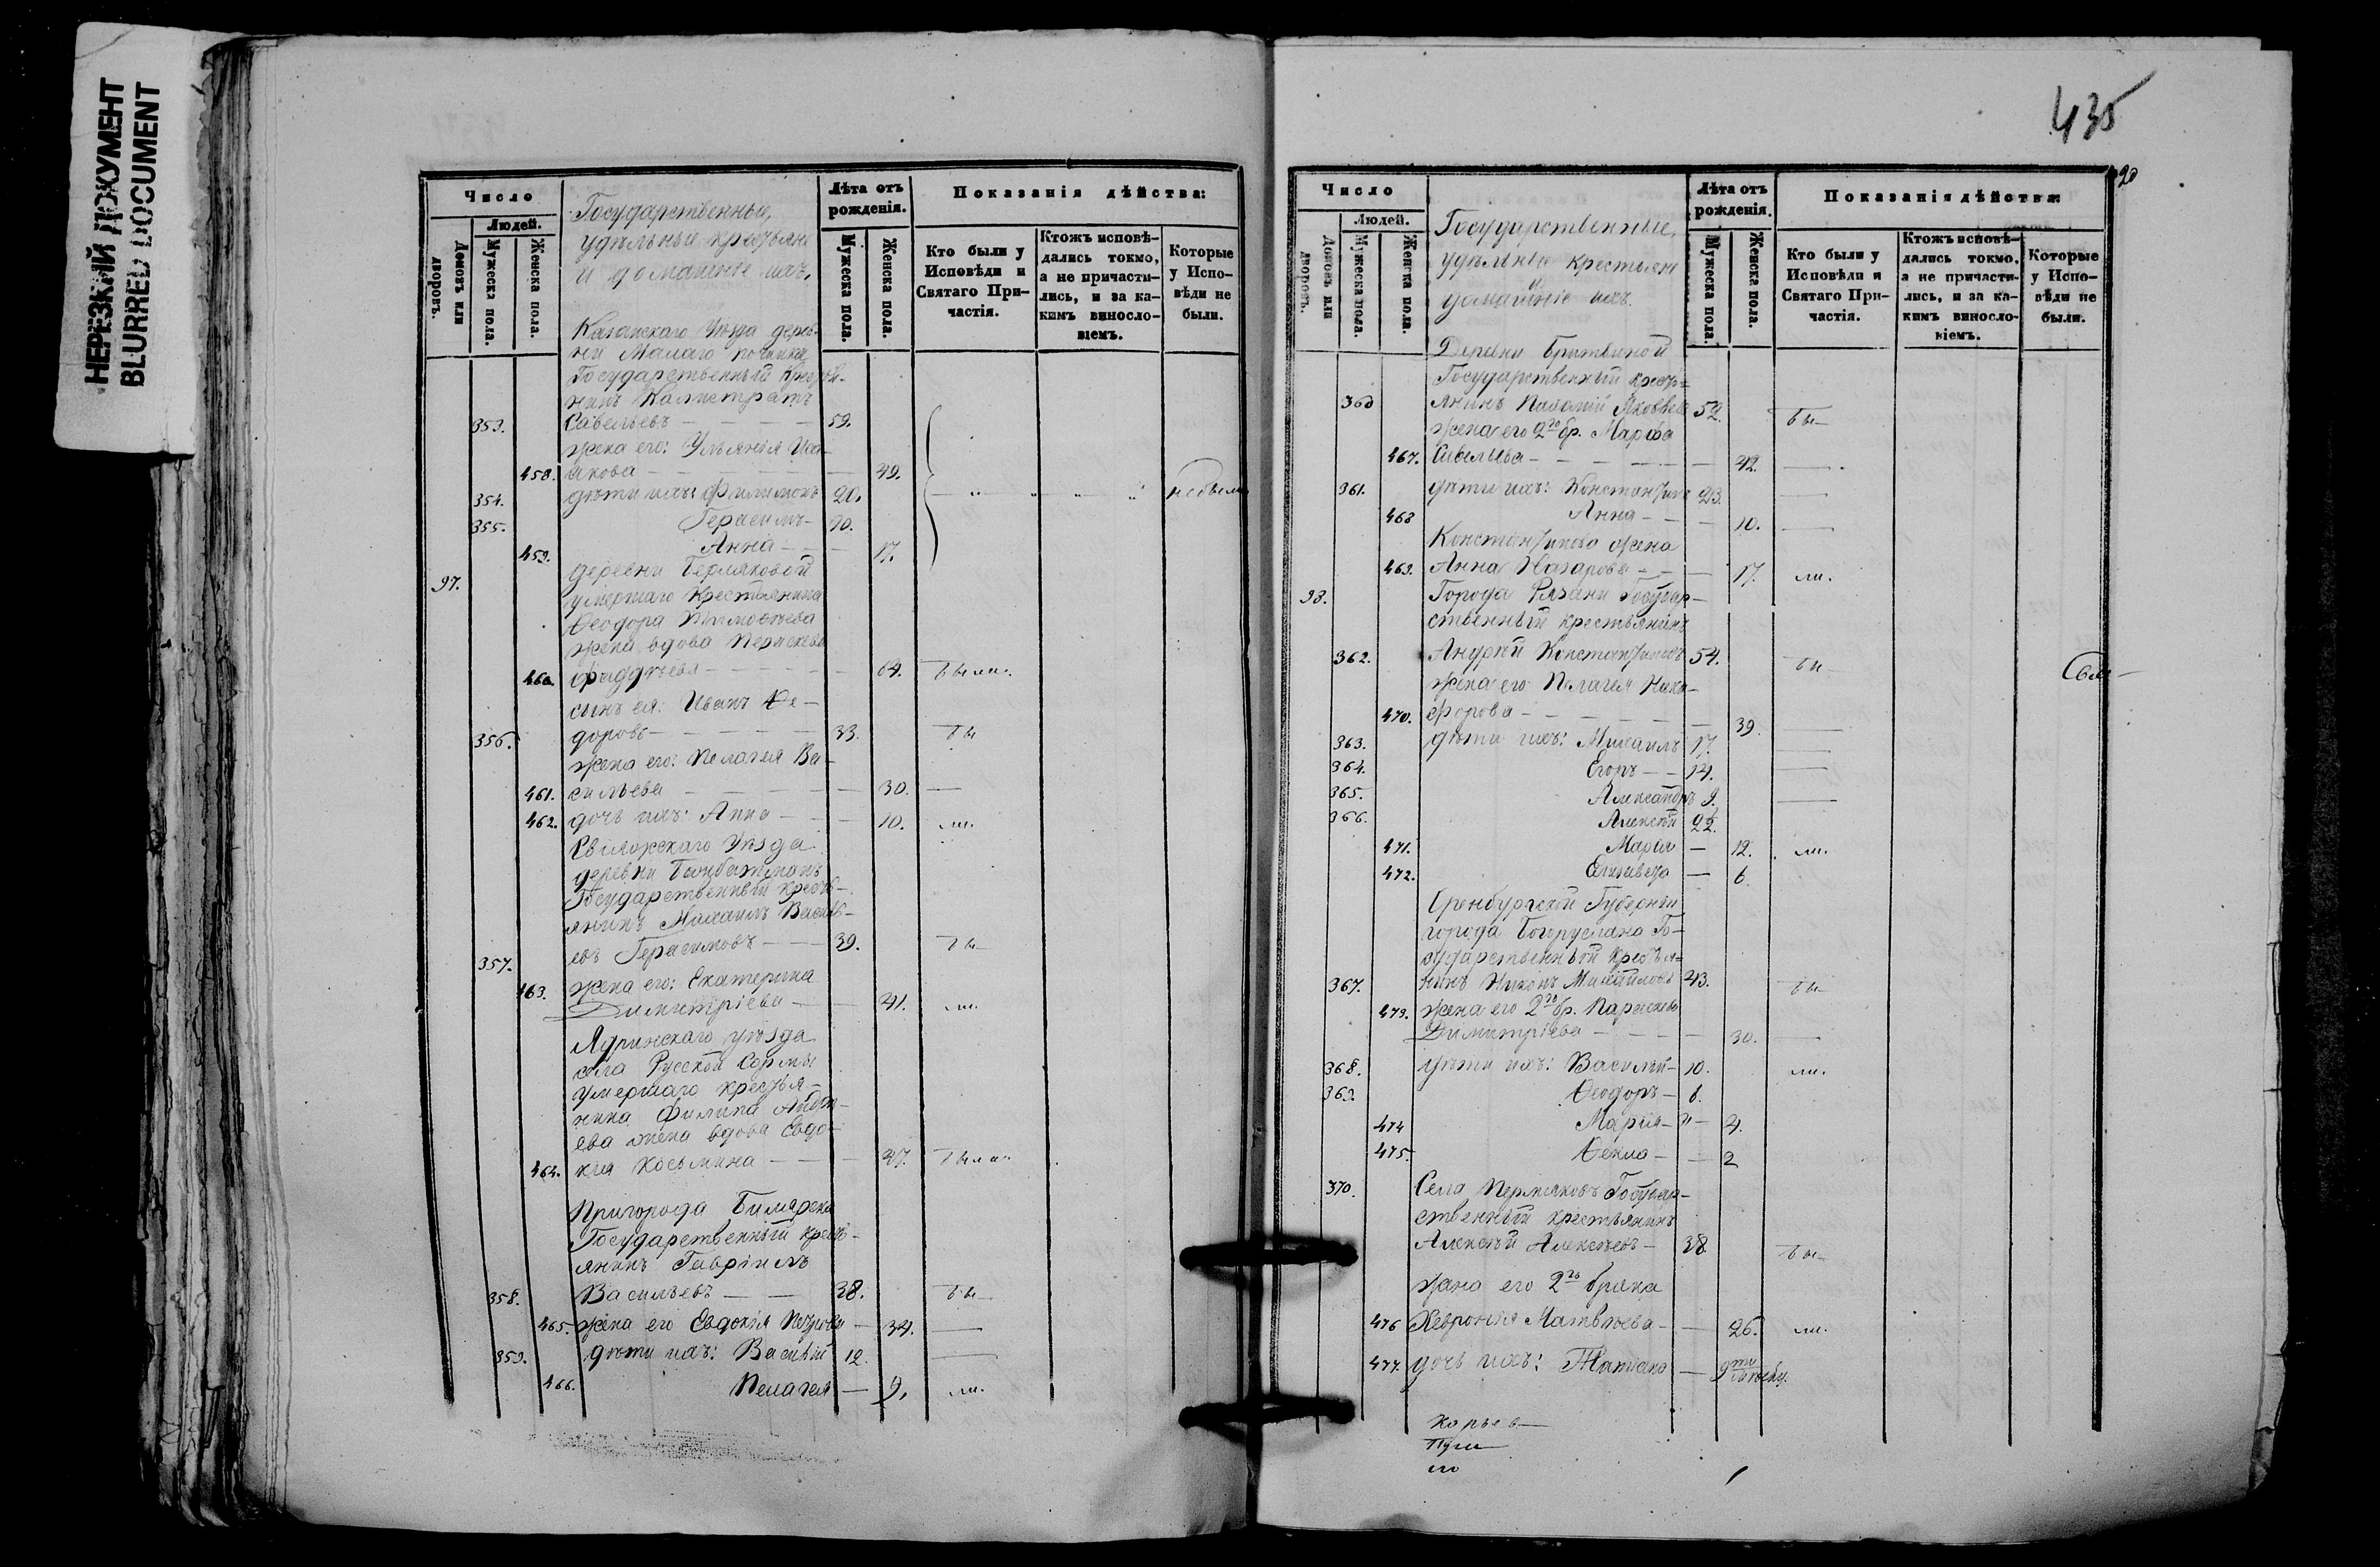 НЕРЕЗКИЙ ДОКУМЕНТ
BLURRED DOCUMENT
Число
Людей.
Домовъ или дворовъ.
Мужеска пола.
Женска пола.
Государственные,
удѣльные крестьяне
и домашніе ихъ.
Лѣта отъ рожденія.
Мужеска пола.
Женска пола.
Показанія дѣйства:
Кто были у Исповѣди и Святаго Причастія.
Ктожъ исповѣдались токмо, а не причастились, и за какимъ винословіемъ.
Которые у Исповѣди не были.
Казанскаго уѣзда дерев-
ни Малаго починка
Государственный крестья-
нинъ Калистратъ
353. Савельевъ — 59.
жена его: Ульянія Иса-
458. акова — 49.
354. дѣти ихъ: Филимонъ 20. небыли
355. Герасимъ — 10.
459. Анна — 17.
97. деревни Берляковой
умершаго крестьянина
Ѳеодора Тимоѳеева
жена вдова Параскева
460. Фаддѣева — 64. были.
сынъ ея: Иванъ Ѳе-
356. доровъ — 33. бы
жена его: Пелагея Ва-
461. сильева — 30. —
462. дочь ихъ: Анна — 10. ли.
Свіяжскаго Уѣзда
деревни
Государственный кресть-
янинъ Михаилъ Василь-
357. евъ Герасимовъ — 39. бы
463. жена его: Екатерина
Димитріева — 41. ли.
Ядринскаго уѣзда
села Русской Сормы
умершаго крестья-
нина Филипа
ева жена вдова Евдо-
464. кія Косьмина — 47. была
Пригорода Билярска
Государственный кресть-
янинъ Гавріилъ
358. Васильевъ — 38. бы
465. жена его Евдокія Петрова — 34. —
359. дѣти ихъ: Василій 12. —
466. Пелагея — 9. ли.
435
Число
Людей.
Домовъ или дворовъ.
Мужеска пола.
Женска пола.
Государственные,
удѣльные крестьяне
и
домашніе ихъ.
Лѣта отъ рожденія.
Мужеска пола.
Женска пола.
Показанія дѣйства:
Кто были у Исповѣди и Святаго Причастія.
Ктожъ исповѣдались токмо, а не причастились, и за какимъ винословіемъ.
Которые у Исповѣди не были.
Деревни Бритвиной
Государственный кресть=
360 янинъ Яковлевъ 52. бы
жена его 2го бр. Марфа
467. Савельева — 42. —
361. дѣти ихъ: Константинъ 23. —
468 Анна — 10. —
Константинова жена
469. Анна Назарова — 17. ли.
98. Города Рязани Государ-
ственный крестьянинъ
362. Андрей Константиновъ 54. бы
жена его Пелагея Ники-
470. форова — 39. —
363. дѣти ихъ: Михаилъ 17. —
364. Егоръ — 14. —
365. Александръ 9. —
366. Алексѣй 22.
471. Марія — 12. ли.
472. Елизавета — 6
Оренбургской Губерніи
города Бугуруслана Го-
сударственный крестья=
367. нинъ Никонъ Михайловъ 43. бы
473. жена его 2го бр. Параскева
Димитріева — 30. —
368. дѣти ихъ: Василій — 10. ли.
369. Ѳеодоръ — 6.
474 Марія — 4.
475. Ѳекла — 2
370. Села Пермяковъ Государ-
ственный крестьянинъ
Алексѣй Алексѣевъ — 38 бы
жена его 2го брака
476 Хевронія Матвѣева — 26. ли.
477. дочь ихъ: Татіана — 9ти